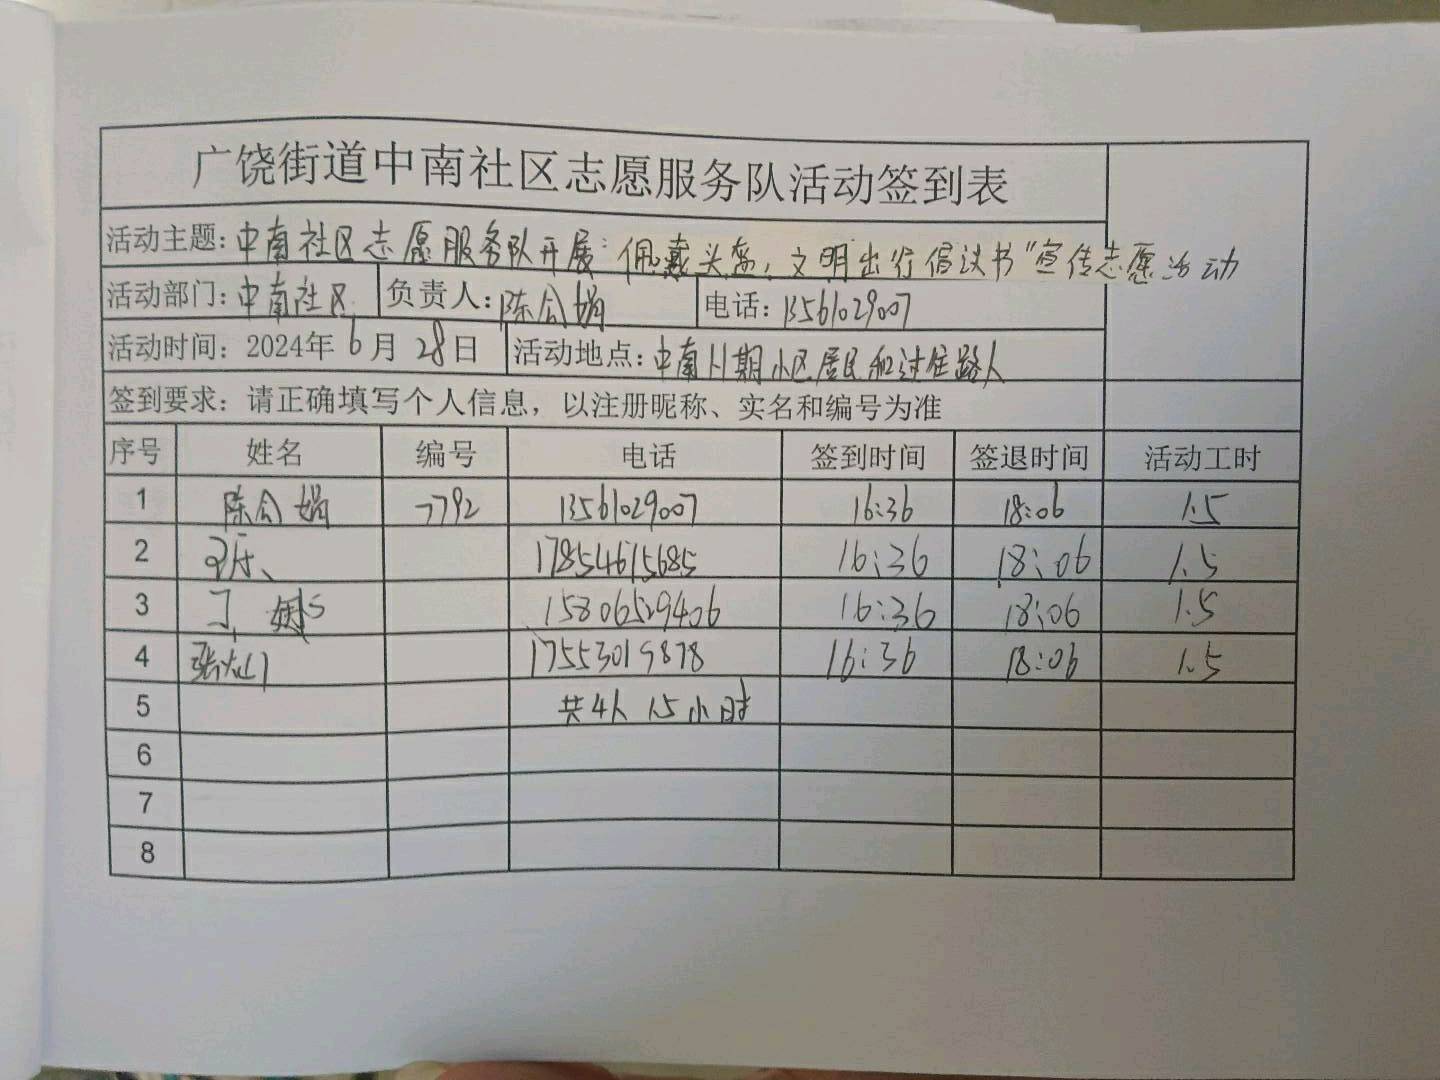 广饶街道中南社区志愿服务队活动签到表
活动主题：中南社区志愿服务队开展“佩戴头盔，文明出行倡议书”宣传志愿活动
活动部门：中南社区 负责人：陈会娟 电话：13561029007
活动时间：2024年6月28日 活动地点：中南11期小区居民和过往路人
签到要求：请正确填写个人信息，以注册昵称、实名和编号为准
序号 姓名 编号 电话 签到时间 签退时间 活动工时
1 陈会娟 7792 13561029007 16:36 18:06 1.5
2 17854675685 16:36 18:06 1.5
3 15806529406 16:36 18:06 1.5
4 17553019878 16:36 18:06 1.5
5 共4人 1.5小时
6
7
8